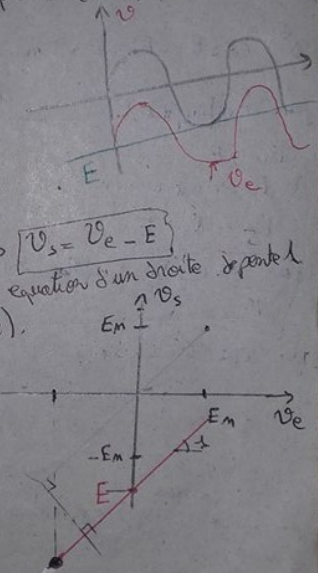 v
E
v_e
v_s = v_e - E
equation d'un droite de pente 1
v_s
E_m
).
E_m
v_e
-E_m
1
E